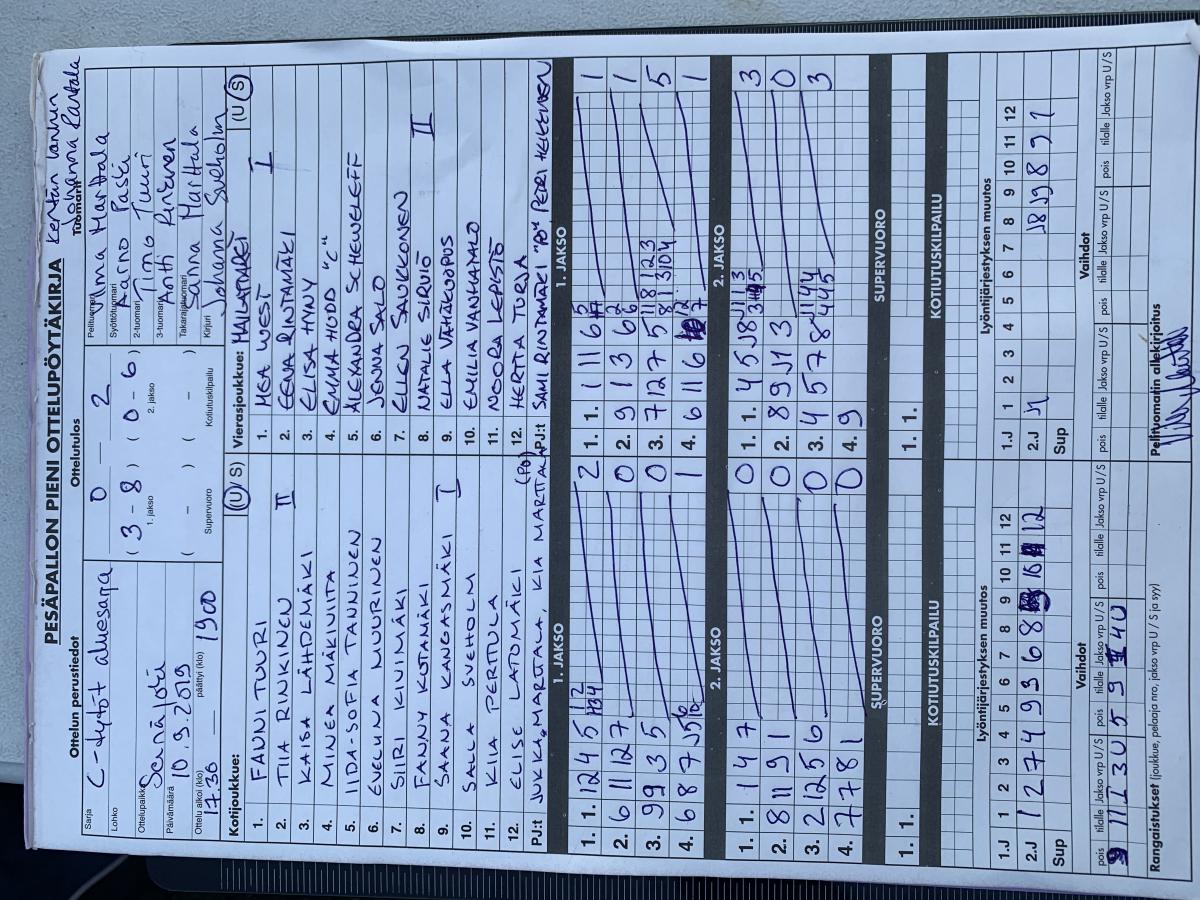 PESÄPALLON PIENI OTTELUPÖYTÄKIRJA
Kentän laidan
Johanna Rantala
Ottelun perustiedot
Ottelutulos
Tuomarit
Sarja C-tytöt aluesarja
Lohko
Ottelupaikka Seinäjoki
Päivämäärä 10.9.2019
Ottelu alkoi (klo) 17.36 päättyi (klo) 1900
0 2
( 3 - 8 ) ( 0 - 6 )
1. jakso 2. jakso
( - ) ( - )
Supervuoro Kotiutuskilpailu
Pelituomari Vilma Marttala
Syöttötuomari Aarno Paski
2-tuomari Timo Tuuri
3-tuomari Antti Rinkinen
Takarajatuomari Sanna Marttala
Kirjuri Johanna Sveholm
Kotijoukkue: (U / S)
1. FANNI TUURI
2. TIIA RINKINEN II
3. KAISA LÄHDEMÄKI
4. MINEA MÄKINIITA
5. IIDA-SOFIA TANNINEN
6. EVELIINA MUURINEN
7. SIIRI KIVINIMÄKI
8. FANNY KOTAMÄKI
9. SAANA KANGASMÄKI I
10. SALLA SVEHOLM
11. KIIA PERTTULA
12. ELISE LATOMÄKI
PJ:t JUKKA MARTTALA, KIA MARTTALA (PO)
Vierasjoukkue: MAILATARET (U / S)
1. MEA WEST I
2. EENA RINTAMÄKI
3. ELISA HYNY
4. EMMA HUDD "C"
5. ALEXANDRA SCHEWELEFF
6. JENNA SALO
7. ELLEN SAUKKONEN
8. NATALIE SIRVIÖ II
9. ELLA VÄHÄKUOPUS
10. EMILIA VANHATALO
11. NOORA LEPISTÖ
12. HERTTA TURJA
PJ:t SAMI RINTAMÄKI "PO" PETRI HEIKKINEN
1. JAKSO
1. 1. 12 4 5 2
2. 6 11 12 7 0
3. 9 9 3 5 0
4. 6 8 7 1
1. JAKSO
1. 1. 1 11 6 1
2. 9 1 3 6 1
3. 7 12 7 5 5
4. 6 11 6 1
2. JAKSO
1. 1. 1 4 7 0
2. 8 11 9 1 0
3. 2 12 5 6 0
4. 7 7 8 1 0
2. JAKSO
1. 1. 4 5 J 8 3
2. 8 9 J 1 3 0
3. 4 5 7 8 3
4. 9
SUPERVUORO
1. 1.
SUPERVUORO
1. 1.
KOTIUTUSKILPAILU
KOTIUTUSKILPAILU
Lyöntijärjestyksen muutos
1.J 1 2 3 4 5 6 7 8 9 10 11 12
2.J 1 2 7 4 9 3 6 8 10 12
Sup
Lyöntijärjestyksen muutos
1.J 1 2 3 4 5 6 7 8 9 10 11 12
2.J
Sup
Vaihdot
pois tilalle Jakso vrp U / S pois tilalle Jakso vrp U / S pois tilalle Jakso vrp U / S
9 11 I 3U 5 9 4U
Vaihdot
pois tilalle Jakso vrp U / S pois tilalle Jakso vrp U / S pois tilalle Jakso vrp U / S
Rangaistukset (joukkue, pelaaja nro, jakso vrp U / S ja syy)
Pelituomarin allekirjoitus